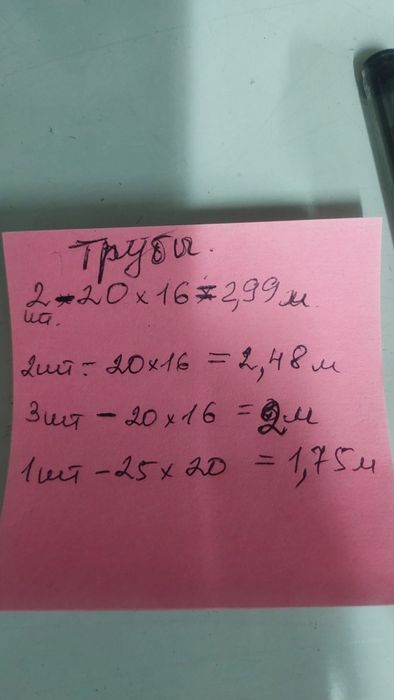 Трубы.
2 - 20 x 16 = 2,99 м
шт.
2шт - 20x16 = 2,48 м
3шт - 20 x 16 = 2м
1шт - 25 x 20 = 1,75м